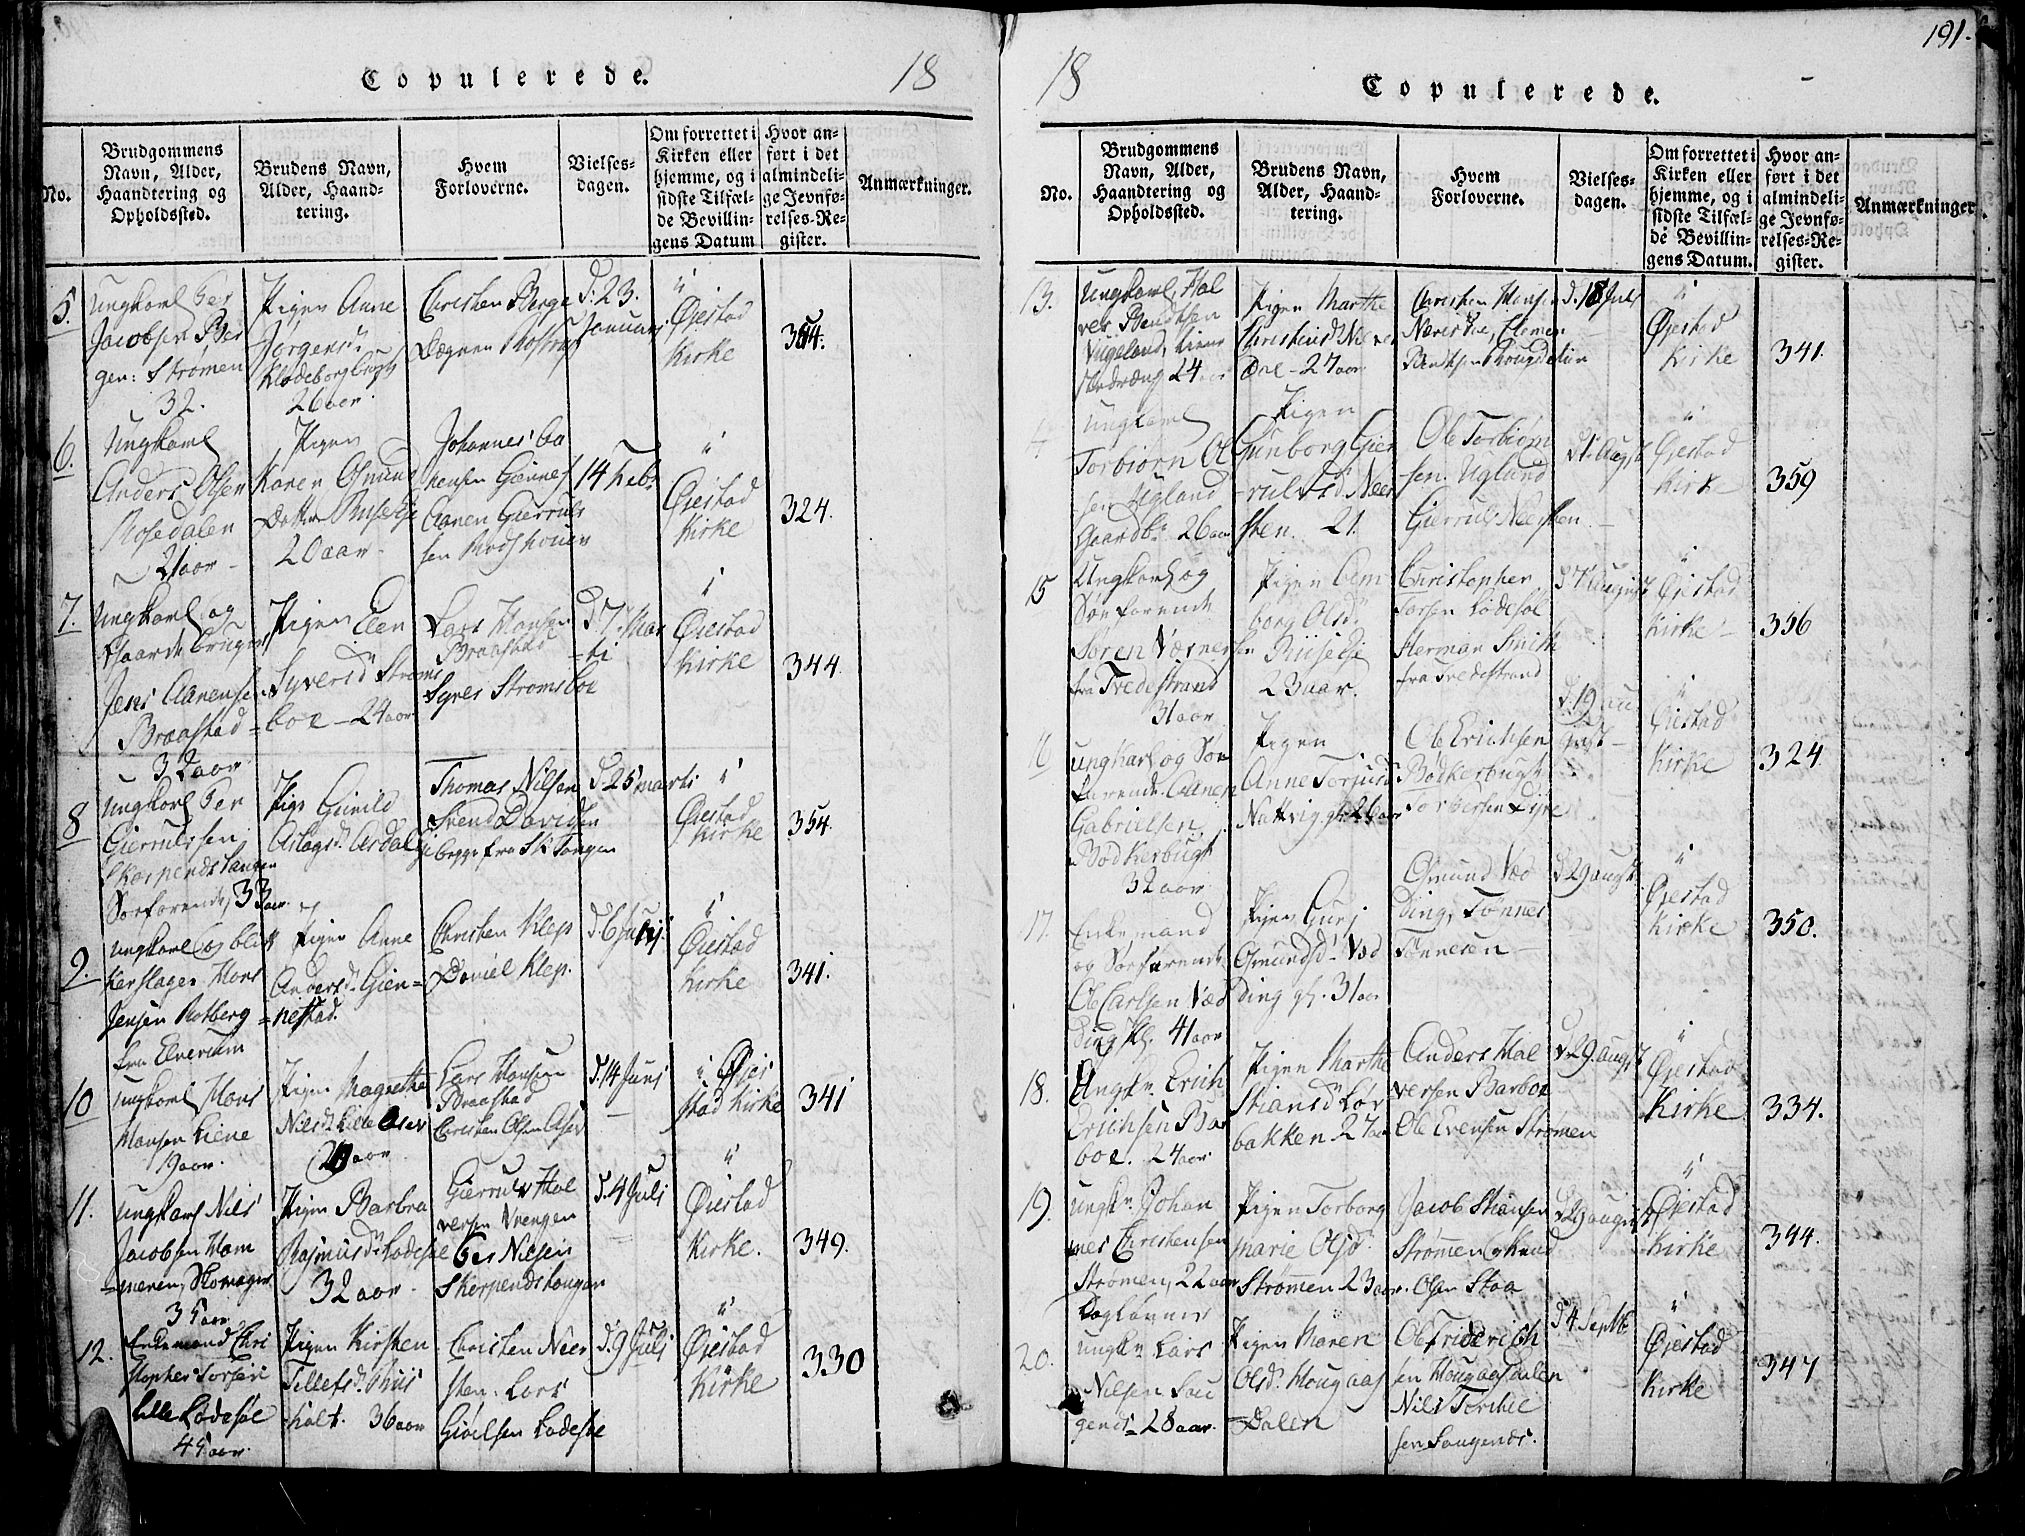 Copulerede. 18
No.
Brudgommens
Navn, Alder,
Haandtering og
Opholdssted.
Brudens Navn,
Alder, Haand-
tering.
Hvem
Forloverne.
Vielses-
dagen.
Om forrettet i
Kirken eller
hjemme, og i
sidste Tilfæl-
de Bevillin-
gens Datum
Hvor an-
ført i det
almindeli-
ge Jevnfø-
relses-Re-
gister.
Anmærkninger.
5.
Ungkarl Per
Jacobsen Ber
gen: Strømen
32.
Pigen Anne
Jørgensd
Klødeborgbrugts
26 aar
Christen Berge
Degnen Rostrup
d. 23.
Januari
"
Øiestad
Kirke
6.
Ungkarl
Anders Olsen
Rosedalen
21 aar
Pigen
Karen Osmund
Datter
20 aar
Johannes Aa
nensen
Aanen Gierruls
sen
14 Feb.
"
Øiestad
Kirke
324.
7.
Ungkarl og
Gaardbruger
Jens Aanensen
Braastad
32 aar
Pigen Elen
Syversd Stroms
boe - 24 aar
Lars Hansen
Braastad
Syver Stromsboe
d. 7. Mar
ti
"
Øiestad
Kirke
344.
8
Ungkarl Per
Gierrulssen
Skarpendstangen
Sørfarende, 33 aar
Pige Gunild
Aslagsd. Asdal
Thomas Nilsen
Svend Davidsen
begge fra Sk Tangen
d. 25 marti
"
Øiestad
Kirke
354.
9.
Ungkarl og blik
kerslager Hans
Jensen Rotberg
fra Elverum
Pigen Anne
Andersd. Gien-
nestad.
Christen Klep
Daniel Klep.
d. 6 Junj.
"
Øiestad
Kirke
341.
10
Ungkarl Hans
Hansen Liene
19 aar.
Pigen Magrethe
Nilsd.
aar
Lars Hansen
Braastad
Christen Olsen Aser
d. 14 Junj
" Øies
tad Kirke
341
11.
Ungkarl Nils
Jacobsen Ham
meren, Skomager
35 aar
Pigen Barbra
Rasmusd. Lødesøe
32 aar
Gierruls Hal
versen Vrengen
Per Nilsen
Skarpendstangen
d. 4 Juli
"
Øiestad
Kirke.
349.
12.
Enkemand Chri
stopher Torsen
lille Lødesøe
45 aar.
Pigen Kirsten
Tellefsd. Riis
holt. 36 aar
Christen Neer
sten. Lars
Giøelsen Lødesøe
d. 9 Juli
"
Øiestad
Kirke
330
191.
18 Copulerede.
No.
Brudgommens
Navn, Alder,
Haandtering og
Opholdssted.
Brudens Navn,
Alder, Haand-
tering.
Hvem
Forloverne.
Vielses-
dagen.
Om forrettet i
Kirken eller
hjemme, og i
sidste Tilfæl-
de Bevillin-
gens Datum.
Hvor an-
ført i det
almindeli-
ge Jevnfø-
relses-Re-
gister.
Anmærkninger
13.
Ungkarl Hal
vor Bendtsen
24 aar
Pigen Marthe
Christensd
27 aar
Christen Hansen
Bentsen Rougdelien
d. 18 Juli
"
Øiestad
Kirke
341.
Ungkarl
Torbiorn Ol
sen Ugland
Gaardb. 26 aar
Pigen
Gunborg Gier
rulsd Neer
sten. 21.
Ole Torbiørn
sen. Ugland
Gierruls Neersten
d 1. Augst
"
Øiestad
Kirke
359
15
Ungkarl og
Sørfarende
Søren Værnersen
fra Tvedestrand
31 aar
Pigen Am
borg Olsd.
23 aar.
Christopher
Torsen Lødesøl
Herman Smith
fra Tvedestrand
d 7 August
"
Øiestad
Kirke
356
16
Ungkarl og Sør
farende. Aanen
Gabrielsen
Bødkerbugt
32 aar
Pigen
Anne Torjusd
Nattvig gl. 26 aar
Ole Erichsen
Bødkerbugt
d. 19 au
gust
"
Øiestad
Kirke
324.
17.
Enkemand
og Sørfarende
Ole Carlsen Ved
ding gl. 41 aar
Pigen Gurj
Osmundsd. Ved
ding gl. 31 aar
Osmund Ved
ding, Tønnes
Tønnesen
d 29 augst
"
Øiestad
Kirke
350.
18.
Ungk. Erich
Erichsen Bar
boe. 24 aar
Pigen Marthe
Stiansd Lør
bakken 27 aar
Anders Hal
versen Barboe
Ole Evensen Strømen
d 29. augst
"
Øiestad
Kirke
334.
19.
Ungk. Johan
nes Christensen
Strømen, 22 aar
Daglønner
Pigen Torborg
marie Olsd.
Strømmen 23 aar
Jacob Stiansen
Strømmen Knud
Olsen Staa
d 29 august
"
Øiestad
Kirke
344.
20.
Ungk. Lars
Nilsen Sau
gends 28 aar.
Pigen Maren
Olsd. Hougaas
Dalen
Ole Friderich
sen Hougaasdalen
Nils Torkel
sen Saugends.
d 4 Septb
"
Øiestad
Kirke
347